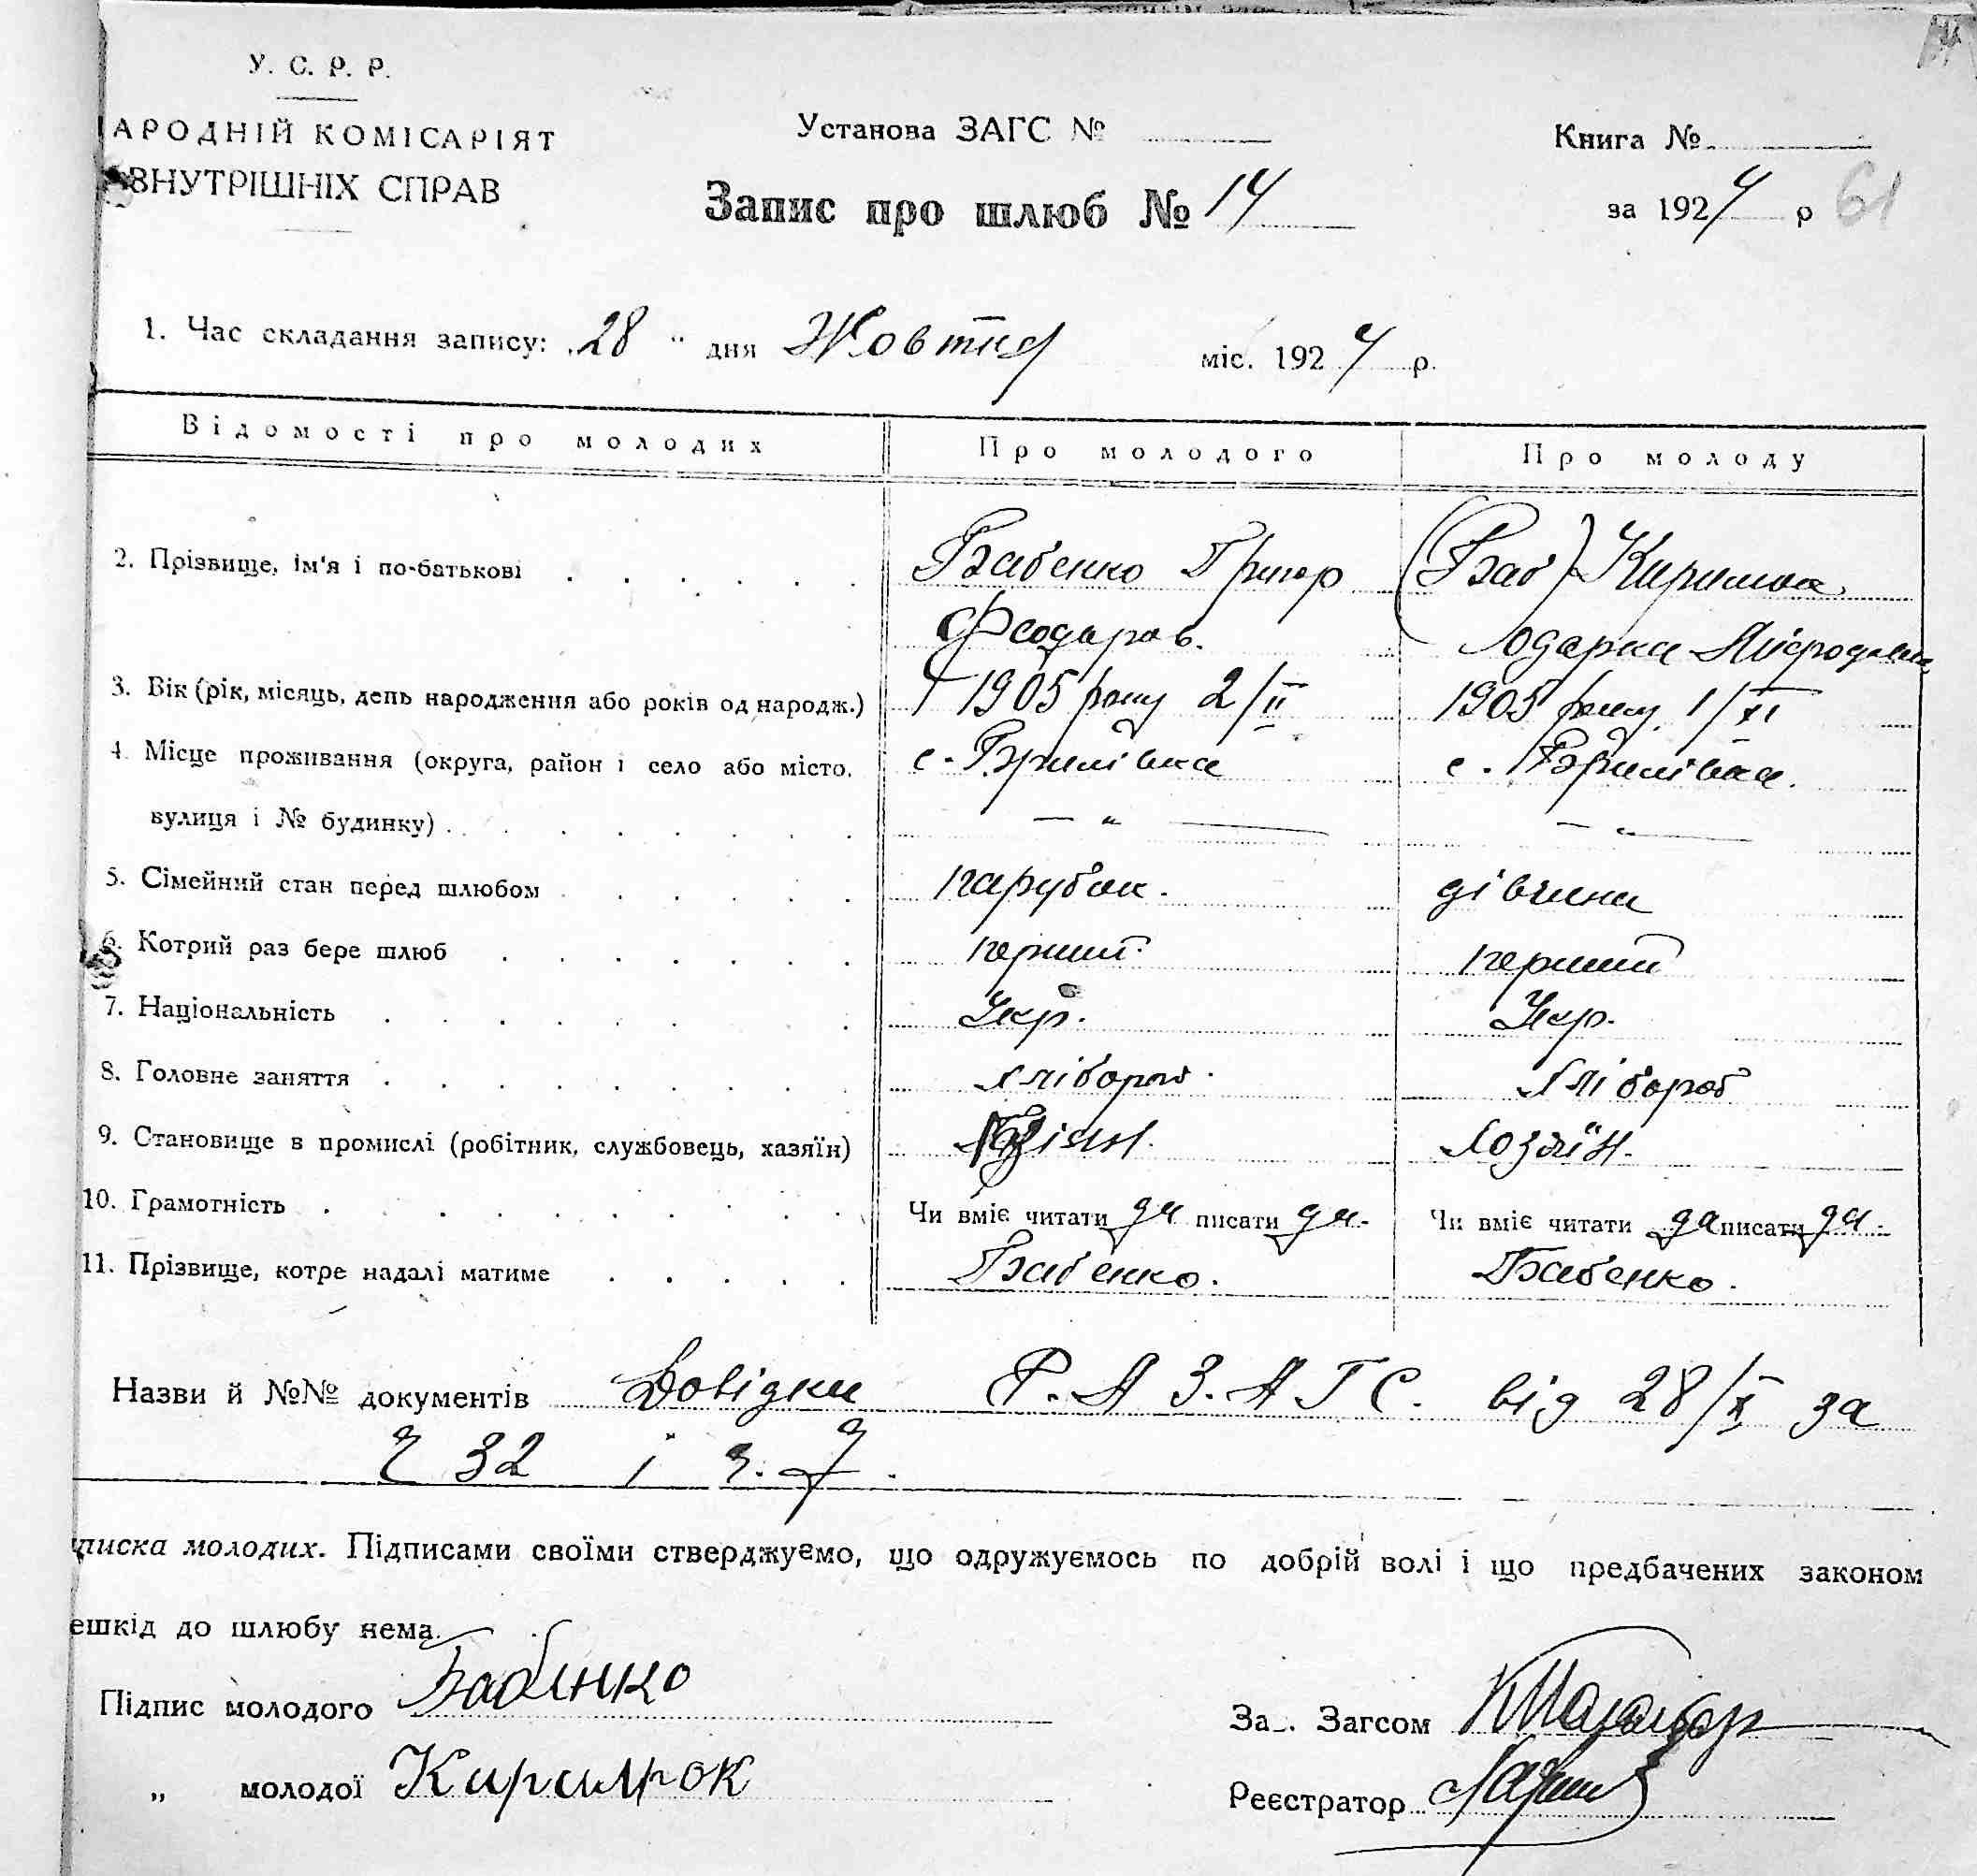 У. С. Р. Р.
АРОДНІЙ КОМІСАРІЯТ
ВНУТРІШНІХ СПРАВ
Установа ЗАГС №
Запис про шлюб № 14
Книга №
за 1924 р 61
1. Час складання запису: 28 " дня Жовтня міс. 1924 р.
Відомості про молодих Про молодого Про молоду
2. Прізвище, ім'я і по-батькові Бабенко Григор (Баб)
Феодоров. Одарка
3. Вік (рік, місяць, день народження або років од народж.) 1905 року 2/II 1905 року 1/XI
4. Місце проживання (округа, район і село або місто, с. Бригілівка с. Бригілівка.
вулиця і № будинку) — " — — " —
5. Сімейний стан перед шлюбом парубок. дівчина
6. Котрий раз бере шлюб перший перший
7. Національність Укр. Укр.
8. Головне заняття хлібороб. Хлібороб
9. Становище в промислі (робітник, службовець, хазяїн) Хозяїн.
10. Грамотність Чи вміє читати да писати да. Чи вміє читати да писати да.
11. Прізвище, котре надалі матиме Бабенко. Бабенко.
Назви й №№ документів Довідки Р. А З. А Г С. від 28/X за
ч 32 і ч. 7.
писка молодих. Підписами своїми стверджуємо, що одружуємось по добрій волі і що предбачених законом
ешкід до шлюбу нема.
Підпис молодого Бабенко
За . Загсом
„ молодої
Реєстратор